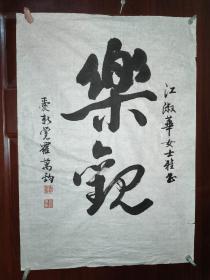 江淑華女士雅正
樂觀
愛新覺羅萬鈞